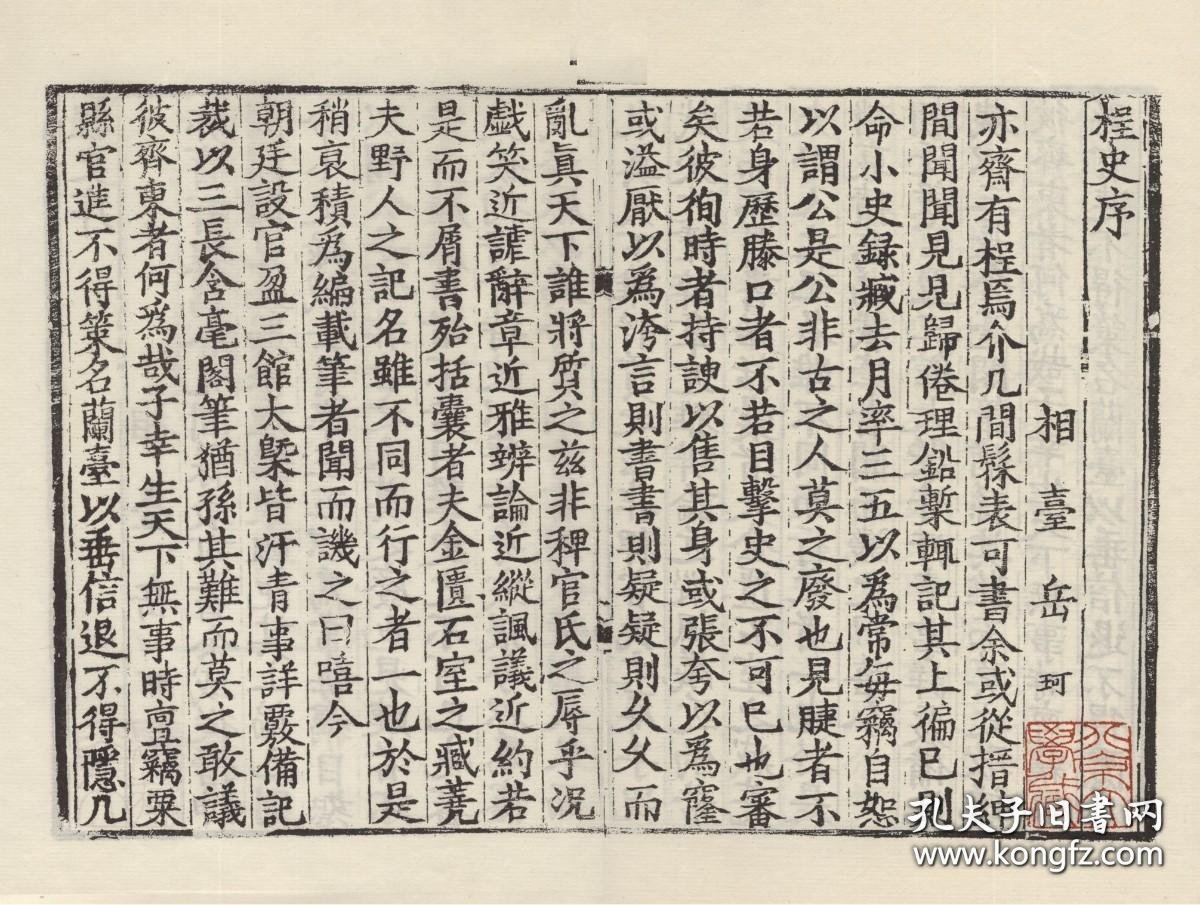 桯史序
相臺岳珂
亦齋有桯焉介几間髹表可書余或從搢紳
間聞聞見見歸倦理鉛槧輒記其上徧已則
命小史録臧去月率三五以爲常每竊自恕
以謂公是公非古之人莫之廢也見睫者不
若身歷滕口者不若目擊史之不可已也審
矣彼徇時者持諛以售其身或張夸以爲窿
或溢厭以爲洿言則書書則疑疑則久久而
亂眞天下誰將質之兹非稗官氏之辱乎况
戯笑近謔辭章近雅辨論近縱諷議近約若
是而不屑書殆括囊者夫金匱石室之臧蕘
夫野人之記名雖不同而行之者一也於是
稍裒積爲編載筆者聞而譏之曰嘻今
朝廷設官盈三館太槩皆汗青事詳覈備記
裁以三長含毫閣筆猶孫其難而莫之敢議
彼齊東者何爲哉子幸生天下無事時亶竊粟
縣官進不得策名蘭臺以垂信退不得隱几
孔夫子旧书网
www.kongfz.com